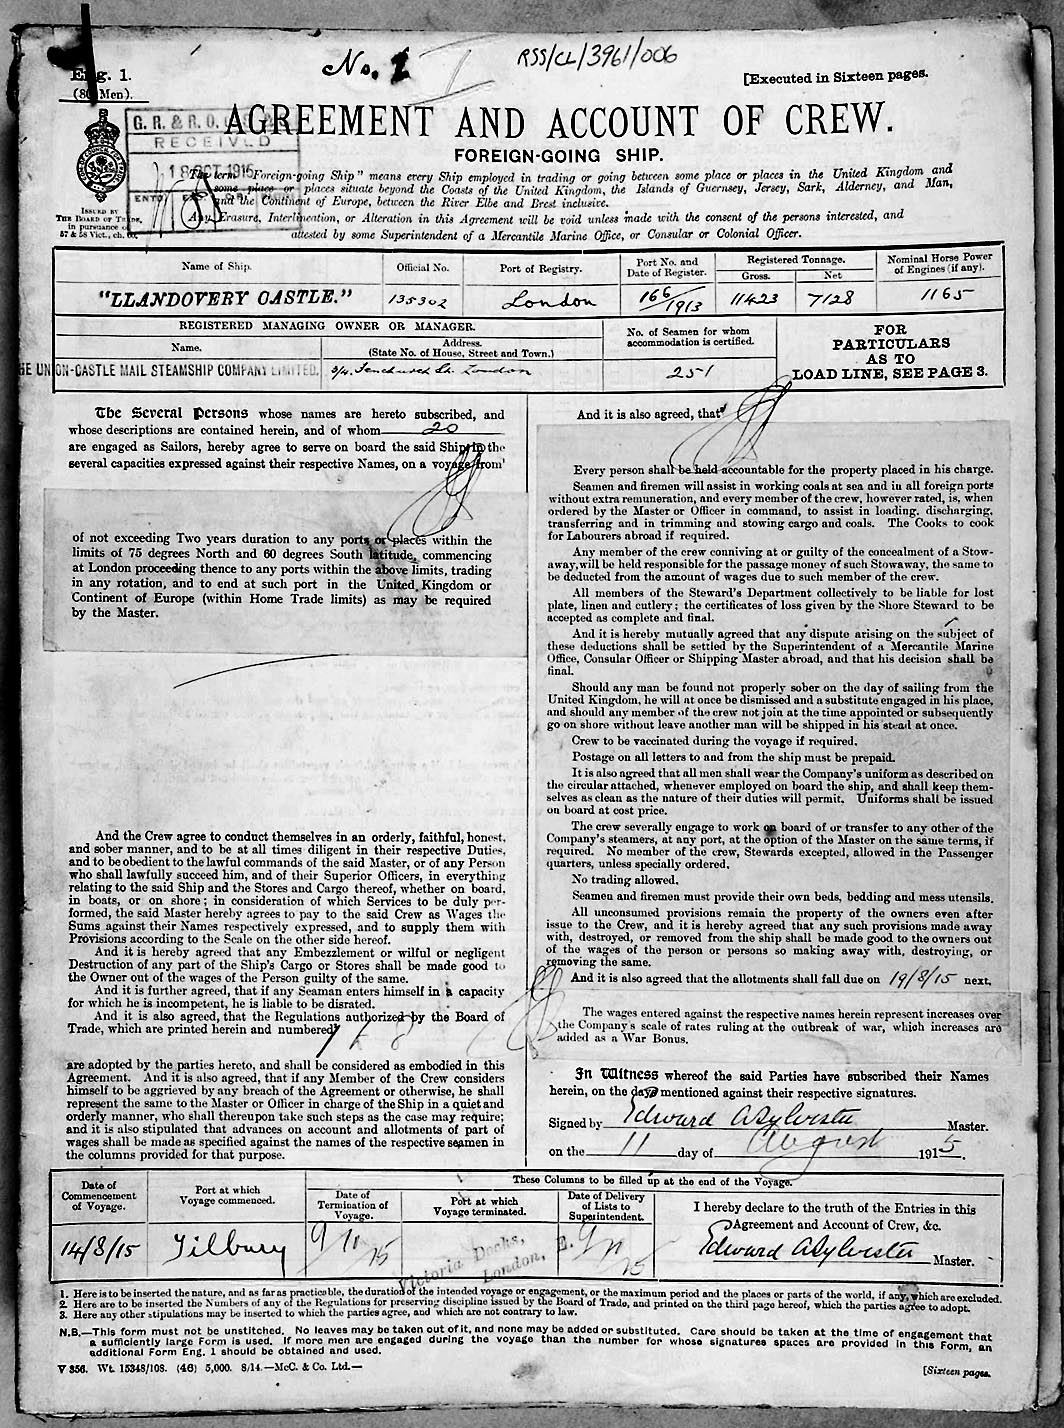 No. 1
RSS/CL/3961/006
Eng. 1.
(80 Men).
[Executed in Sixteen pages.
AGREEMENT AND ACCOUNT OF CREW.
FOREIGN-GOING SHIP.
RECEIVED
ISSUED BY
THE BOARD OF TRADE,
in pursuance of
57 & 58 Vict., ch. 60.
The term "Foreign-going Ship" means every Ship employed in trading or going between some place or places in the United Kingdom and
some place or places situate beyond the Coasts of the United Kingdom, the Islands of Guernsey, Jersey, Sark, Alderney, and Man,
and the Continent of Europe, between the River Elbe and Brest inclusive.
Any Erasure, Interlineation, or Alteration in this Agreement will be void unless made with the consent of the persons interested, and
attested by some Superintendent of a Mercantile Marine Office, or Consular or Colonial Officer.
Name of Ship.
Official No.
Port of Registry.
Port No. and
Date of Register.
Registered Tonnage.
Gross.
Net
Nominal Horse Power
of Engines (if any).
"LLANDOVERY CASTLE."
135302
London
166/1913
11423
7128
1165
REGISTERED MANAGING OWNER OR MANAGER.
Name.
Address.
(State No. of House, Street and Town.)
No. of Seamen for whom
accommodation is certified.
FOR
PARTICULARS
AS TO
LOAD LINE, SEE PAGE 3.
UNION-CASTLE MAIL STEAMSHIP COMPANY LIMITED.
3/4. Fenchurch St. London
251
The Several Persons whose names are hereto subscribed, and
whose descriptions are contained herein, and of whom 20
are engaged as Sailors, hereby agree to serve on board the said Ship, in the
several capacities expressed against their respective Names, on a voyage from¹
of not exceeding Two years duration to any ports or places within the
limits of 75 degrees North and 60 degrees South latitude, commencing
at London proceeding thence to any ports within the above limits, trading
in any rotation, and to end at such port in the United Kingdom or
Continent of Europe (within Home Trade limits) as may be required
by the Master.
And the Crew agree to conduct themselves in an orderly, faithful, honest,
and sober manner, and to be at all times diligent in their respective Duties,
and to be obedient to the lawful commands of the said Master, or of any Person
who shall lawfully succeed him, and of their Superior Officers, in everything
relating to the said Ship and the Stores and Cargo thereof, whether on board,
in boats, or on shore; in consideration of which Services to be duly per-
formed, the said Master hereby agrees to pay to the said Crew as Wages the
Sums against their Names respectively expressed, and to supply them with
Provisions according to the Scale on the other side hereof.
And it is hereby agreed that any Embezzlement or wilful or negligent
Destruction of any part of the Ship's Cargo or Stores shall be made good to
the Owner out of the wages of the Person guilty of the same.
And it is further agreed, that if any Seaman enters himself in a capacity
for which he is incompetent, he is liable to be disrated.
And it is also agreed, that the Regulations authorized by the Board of
Trade, which are printed herein and numbered²
are adopted by the parties hereto, and shall be considered as embodied in this
Agreement. And it is also agreed, that if any Member of the Crew considers
himself to be aggrieved by any breach of the Agreement or otherwise, he shall
represent the same to the Master or Officer in charge of the Ship in a quiet and
orderly manner, who shall thereupon take such steps as the case may require;
and it is also stipulated that advances on account and allotments of part of
wages shall be made as specified against the names of the respective seamen in
the columns provided for that purpose.
And it is also agreed, that³
Every person shall be held accountable for the property placed in his charge.
Seamen and firemen will assist in working coals at sea and in all foreign ports
without extra remuneration, and every member of the crew, however rated, is, when
ordered by the Master or Officer in command, to assist in loading, discharging,
transferring and in trimming and stowing cargo and coals. The Cooks to cook
for Labourers abroad if required.
Any member of the crew conniving at or guilty of the concealment of a Stow-
away, will be held responsible for the passage money of such Stowaway, the same to
be deducted from the amount of wages due to such member of the crew.
All members of the Steward's Department collectively to be liable for lost
plate, linen and cutlery; the certificates of loss given by the Shore Steward to be
accepted as complete and final.
And it is hereby mutually agreed that any dispute arising on the subject of
these deductions shall be settled by the Superintendent of a Mercantile Marine
Office, Consular Officer or Shipping Master abroad, and that his decision shall be
final.
Should any man be found not properly sober on the day of sailing from the
United Kingdom, he will at once be dismissed and a substitute engaged in his place,
and should any member of the crew not join at the time appointed or subsequently
go on shore without leave another man will be shipped in his stead at once.
Crew to be vaccinated during the voyage if required.
Postage on all letters to and from the ship must be prepaid.
It is also agreed that all men shall wear the Company's uniform as described on
the circular attached, whenever employed on board the ship, and shall keep them-
selves as clean as the nature of their duties will permit. Uniforms shall be issued
on board at cost price.
The crew severally engage to work on board of or transfer to any other of the
Company's steamers, at any port, at the option of the Master on the same terms, if
required. No member of the crew, Stewards excepted, allowed in the Passenger
quarters, unless specially ordered.
No trading allowed.
Seamen and firemen must provide their own beds, bedding and mess utensils.
All unconsumed provisions remain the property of the owners even after
issue to the Crew, and it is hereby agreed that any such provisions made away
with, destroyed, or removed from the ship shall be made good to the owners out
of the wages of the person or persons so making away with, destroying, or
removing the same.
And it is also agreed that the allotments shall fall due on 19/8/15 next.
The wages entered against the respective names herein represent increases over
the Company's scale of rates ruling at the outbreak of war, which increases are
added as a War Bonus.
In Witness whereof the said Parties have subscribed their Names
herein, on the days mentioned against their respective signatures.
Signed by Edward A Sylvester Master.
on the 11 day of August 1915.
Date of
Commencement
of Voyage.
Port at which
Voyage commenced.
These Columns to be filled up at the end of the Voyage.
Date of
Termination of
Voyage.
Port at which
Voyage terminated.
Date of Delivery
of Lists to
Superintendent.
I hereby declare to the truth of the Entries in this
Agreement and Account of Crew, &c.
14/8/15
Tilbury
9/11/15
Victoria Docks,
London, E.
9/11/15
Edward A Sylvester Master.
1. Here is to be inserted the nature, and as far as practicable, the duration of the intended voyage or engagement, or the maximum period and the places or parts of the world, if any, which are excluded.
2. Here are to be inserted the Numbers of any of the Regulations for preserving discipline issued by the Board of Trade, and printed on the third page hereof, which the parties agree to adopt.
3. Here any other stipulations may be inserted to which the parties agree, and which are not contrary to law.
N.B.—This form must not be unstitched. No leaves may be taken out of it, and none may be added or substituted. Care should be taken at the time of engagement that
a sufficiently large Form is used. If more men are engaged during the voyage than the number for whose signatures spaces are provided in this Form, an
additional Form Eng. 1 should be obtained and used.
V 356. Wt. 15348/108. (46) 5,000. 8/14.—McC. & Co. Ltd.—
[Sixteen pages.